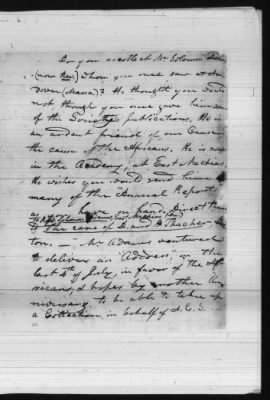 Do you recollect Mr Solomon
(now Rev.) whom you once saw at An
dover (Massa)? He thought you would
not though you once gave him some
of the Society's publications. He is
an ardent friend of our Cause
the cause of the Africans. He is now
in the Academy, at East Machias.
He wishes you would send him
many of the "Annual Reports
on hand. Direct them
to the care of D. and P. Thacher,
ton. — Mr Adams ventured
to deliver an "Address", on the
last 4th of July, in favor of the Af
ricans, & hopes by another An
niversary to be able to take up
a Collection, in behalf of A. C. S. —